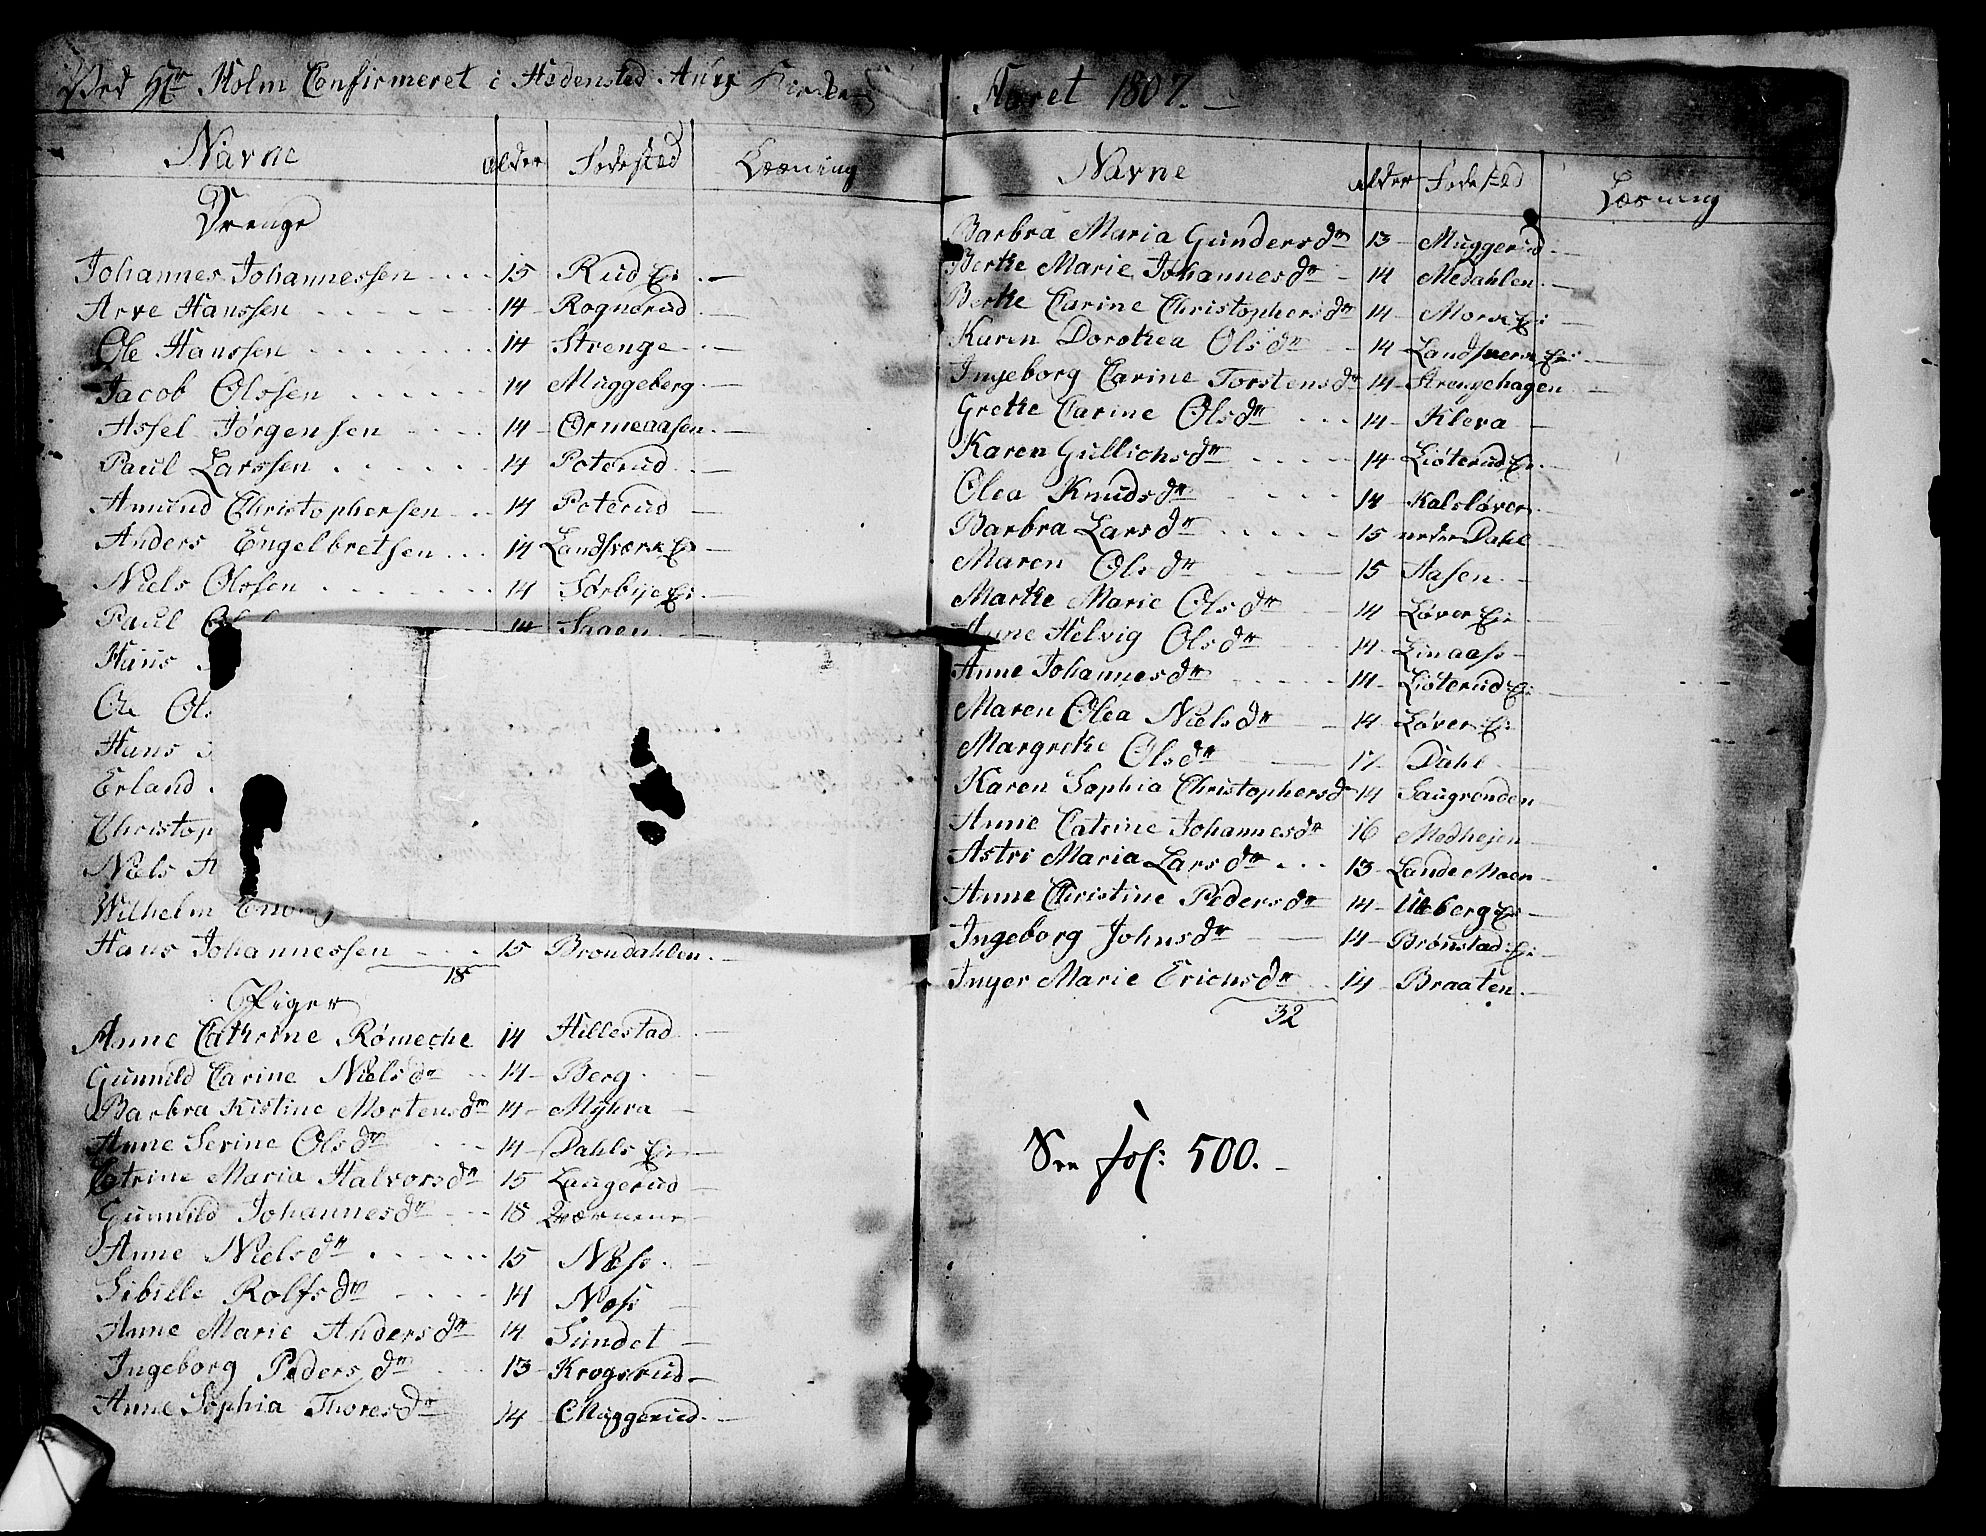 Ved Hr Holm Confirmeret i Hedensted Aar
Aaret 1807.
Navne Alder Fødested Læsning
Drenge
Johannes Johannessen 15 Rud Ei.
Arve Hanssen 14 Rognerud
Ole Hanssen 14 Strenge
Jacob Olssen 14 Muggeberg
Assel Jørgensen 14 Ormeaasen
Paul Larssen 14 Poterud
Amund Christophersen 14 Poterud
Anders Engelbretsen 14 Landsværk Ei
Niels Olssen 14 Sørbye Ei.
Paul 14 Sagen
Hans
Ole Ols
Hans
Erland
Christop
Niels
Wilhelm
Hans Johannessen 15 Brondahlen
18
Piger
Anne Cathrine Römeche 14 Hillestad
Gunnild Carine Nielsdtr 14 Berg
Barbra Kistine Mortensdtr 14 Myhra
Anne Serine Olsdtr 14 Dahls Ei
Catrine Maria Halvorsdtr 15 Laugerud
Gunnild Johannesdtr 18 Qværnene
Anne Nielsdtr 15 Næss
Sibille Rolfsdtr 14 Næss
Anne Marie Andersdtr 14 Sundet
Ingeborg Pedersdtr 13 Krogsrud
Anne Sophia Thoresdtr 14 Muggerud
Navne Alder Fødested Læsning
Barbra Maria Gundersdtr 13 Muggerud
Berthe Marie Johannesdtr 14 Medahlen
Berthe Carine Christophersdtr 14 Mork Ei
Karen Dorothea Olsdtr 14 Landsværk Ei
Ingeborg Carine Torstensdtr 14 Strengehagen
Grethe Carine Olsdtr 14 Kleva
Karen Gullichsdtr 14 Liøterud Ei.
Olea Knudsdtr 14 Kalsløver
Barbra Larsdtr 15 neder Dahl
Maren Olsdtr 15 Aasen
Marthe Marie Olsdtr 14 Løver Ei
Anne Helvig Olsdtr 14 Linaass
Anne Johannesdtr 14 Liøterud Ei
Maren Olea Nielsdtr 14 Løver Ei
Margrethe Olsdtr 17 Dahl
Karen Sophia Christophersdtr 14 Saugrenden
Anne Catrine Johannesdtr 16 Medhejen
Astri Maria Larsdtr 13 Lande Moen
Anne Christine Pedersdtr 14 Ulleberg Ei
Ingeborg Johnsdtr 14 Brønstad Ei
Inger Marie Erichsdtr 14 Braaten
32
See fol: 500.